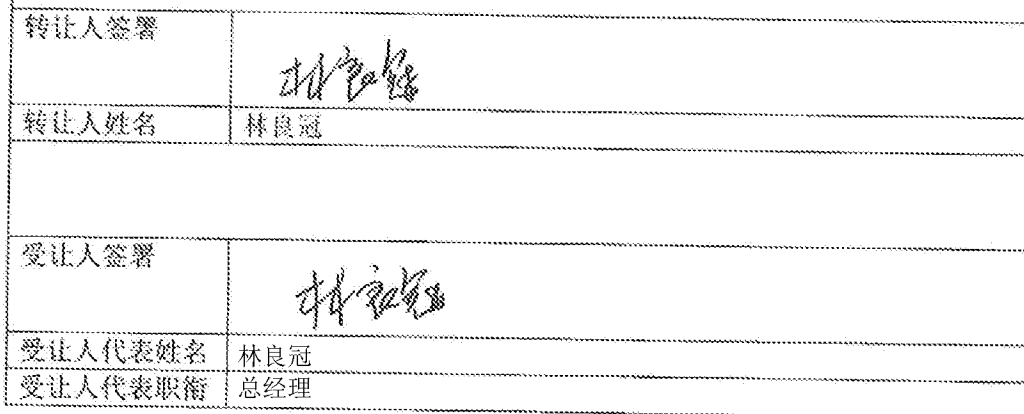 转让人签署
林良冠
转让人姓名 林良冠
受让人签署
林良冠
受让人代表姓名 林良冠
受让人代表职衔 总经理